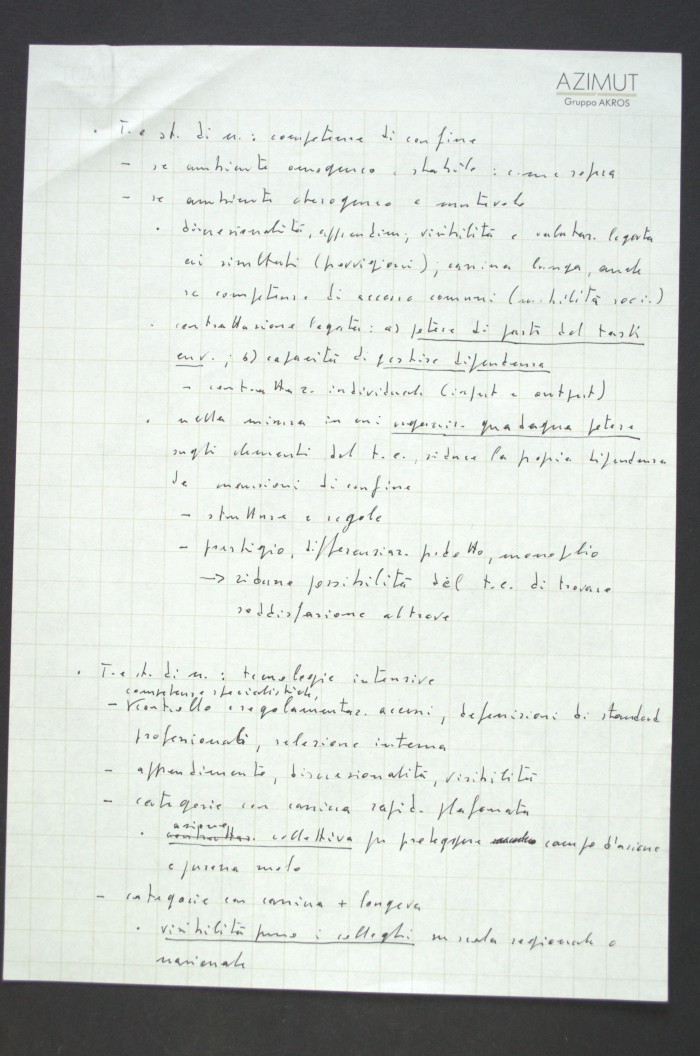 AZIMUT
Gruppo AKROS
. T. e st. di n. : competenze di confine
- se ambiente omogeneo e stabile : come sopra
- se ambiente eterogeneo e mutevole
. discrezionalità, apprendim., visibilità e valutaz. legata
ai risultati (provvigioni) ; carriera lunga, anche
se competenze di accesso comuni (mobilità soci.)
. contrattazione legata : a) potere di parti del task
env. ; b) capacità di gestire dipendenza
- contrattaz. individuale (input e output)
. nella misura in cui organizz. guadagna potere
sugli elementi del t.e., riduce la propria dipendenza
da mansioni di confine
- strutture e regole
- prestigio, differenziaz. prodotto, monopolio
-> riduce possibilità del t.e. di trovare
soddisfazione altrove
. T. e st. di n. : tecnologie intensive
competenze specialistiche,
- controllo e regolamentaz. accessi, definizioni di standard
professionali, selezione interna
- apprendimento, discrezionalità, visibilità
- categorie con carriera rapid. plafonata
. azione collettiva per proteggere campo d'azione
e
- categorie con carriera + longeva
. visibilità presso i colleghi su scala regionale o
nazionale